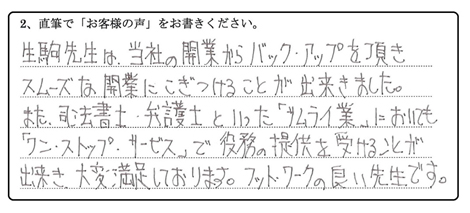 2、直筆で「お客様の声」をお書きください。
生駒先生は、当社の開業からバック・アップを頂き
スムーズな開業にこぎつけることが出来きました。
また、司法書士・弁護士といった「サムライ業」においても
「ワン・ストップ・サービス」で役務の提供を受けることが
出来き、大変満足しております。フット・ワークの良い先生です。